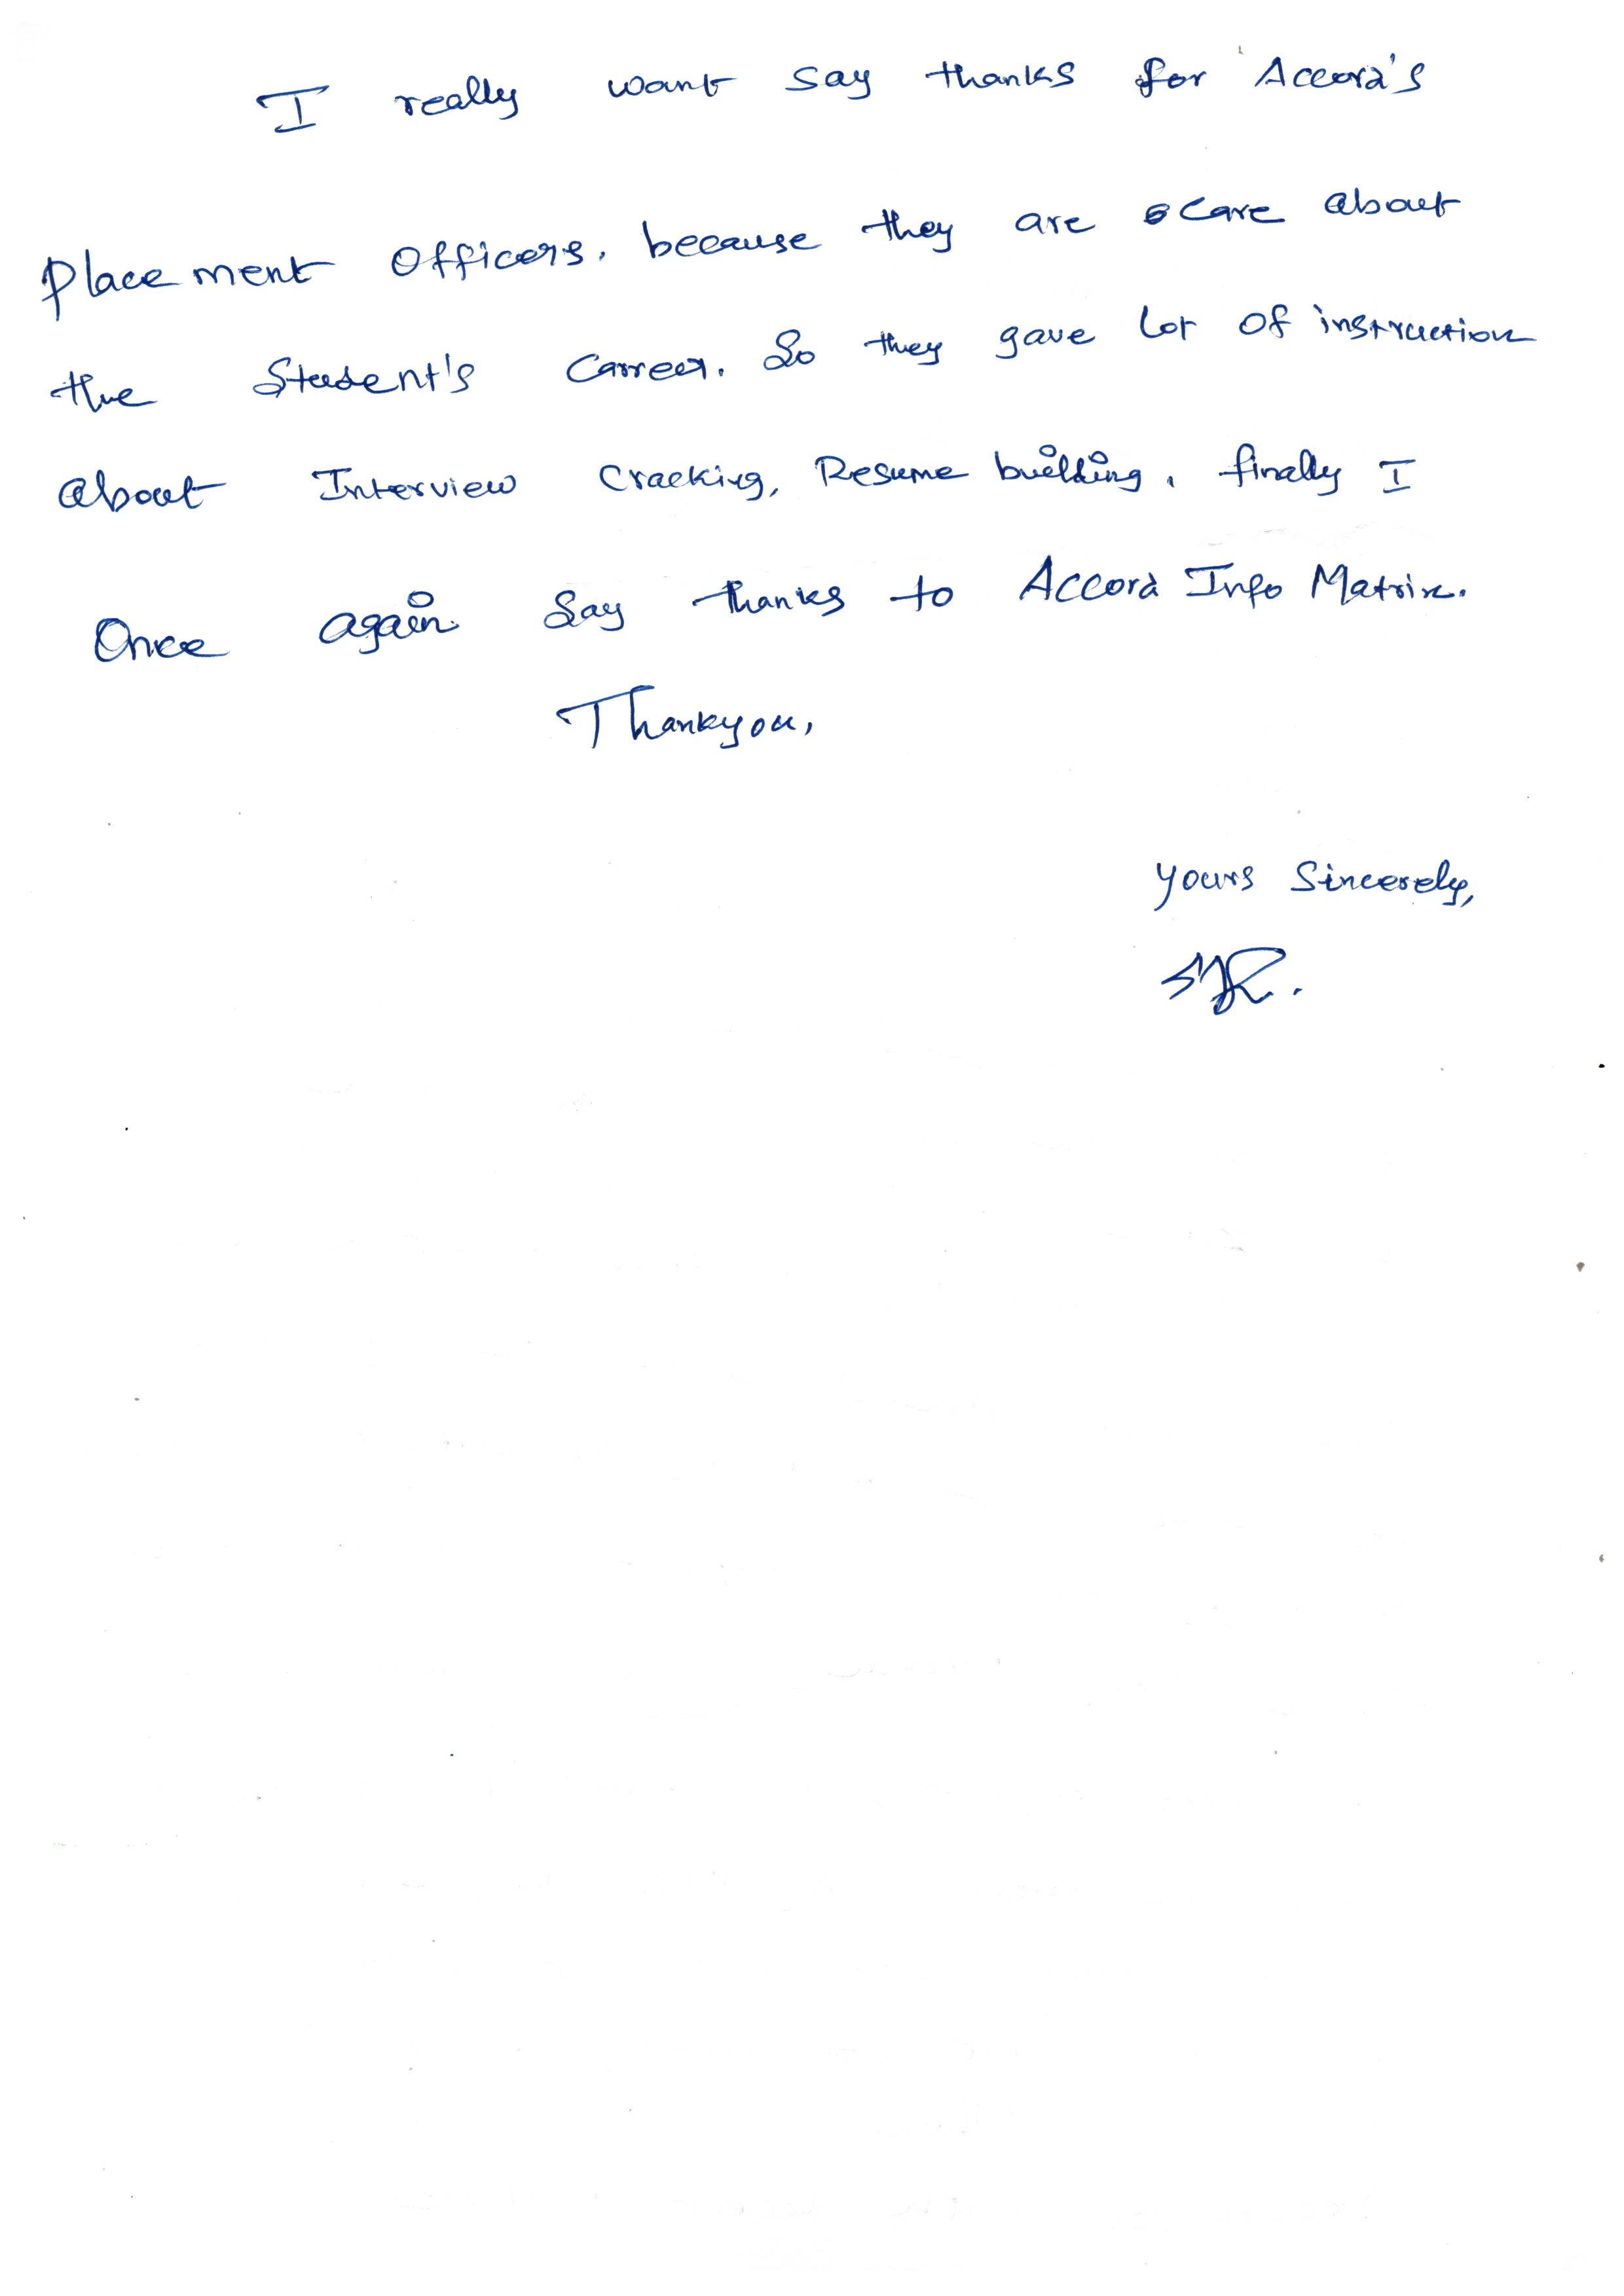 I really want say thanks for Accord's
Placement Officers. because they are care about
the Student's Carreer. So they gave lot of instruction
about Interview Cracking, Resume building. finally I
Once again say thanks to Accord Info Matrix.
Thankyou,
yours Sincerely,